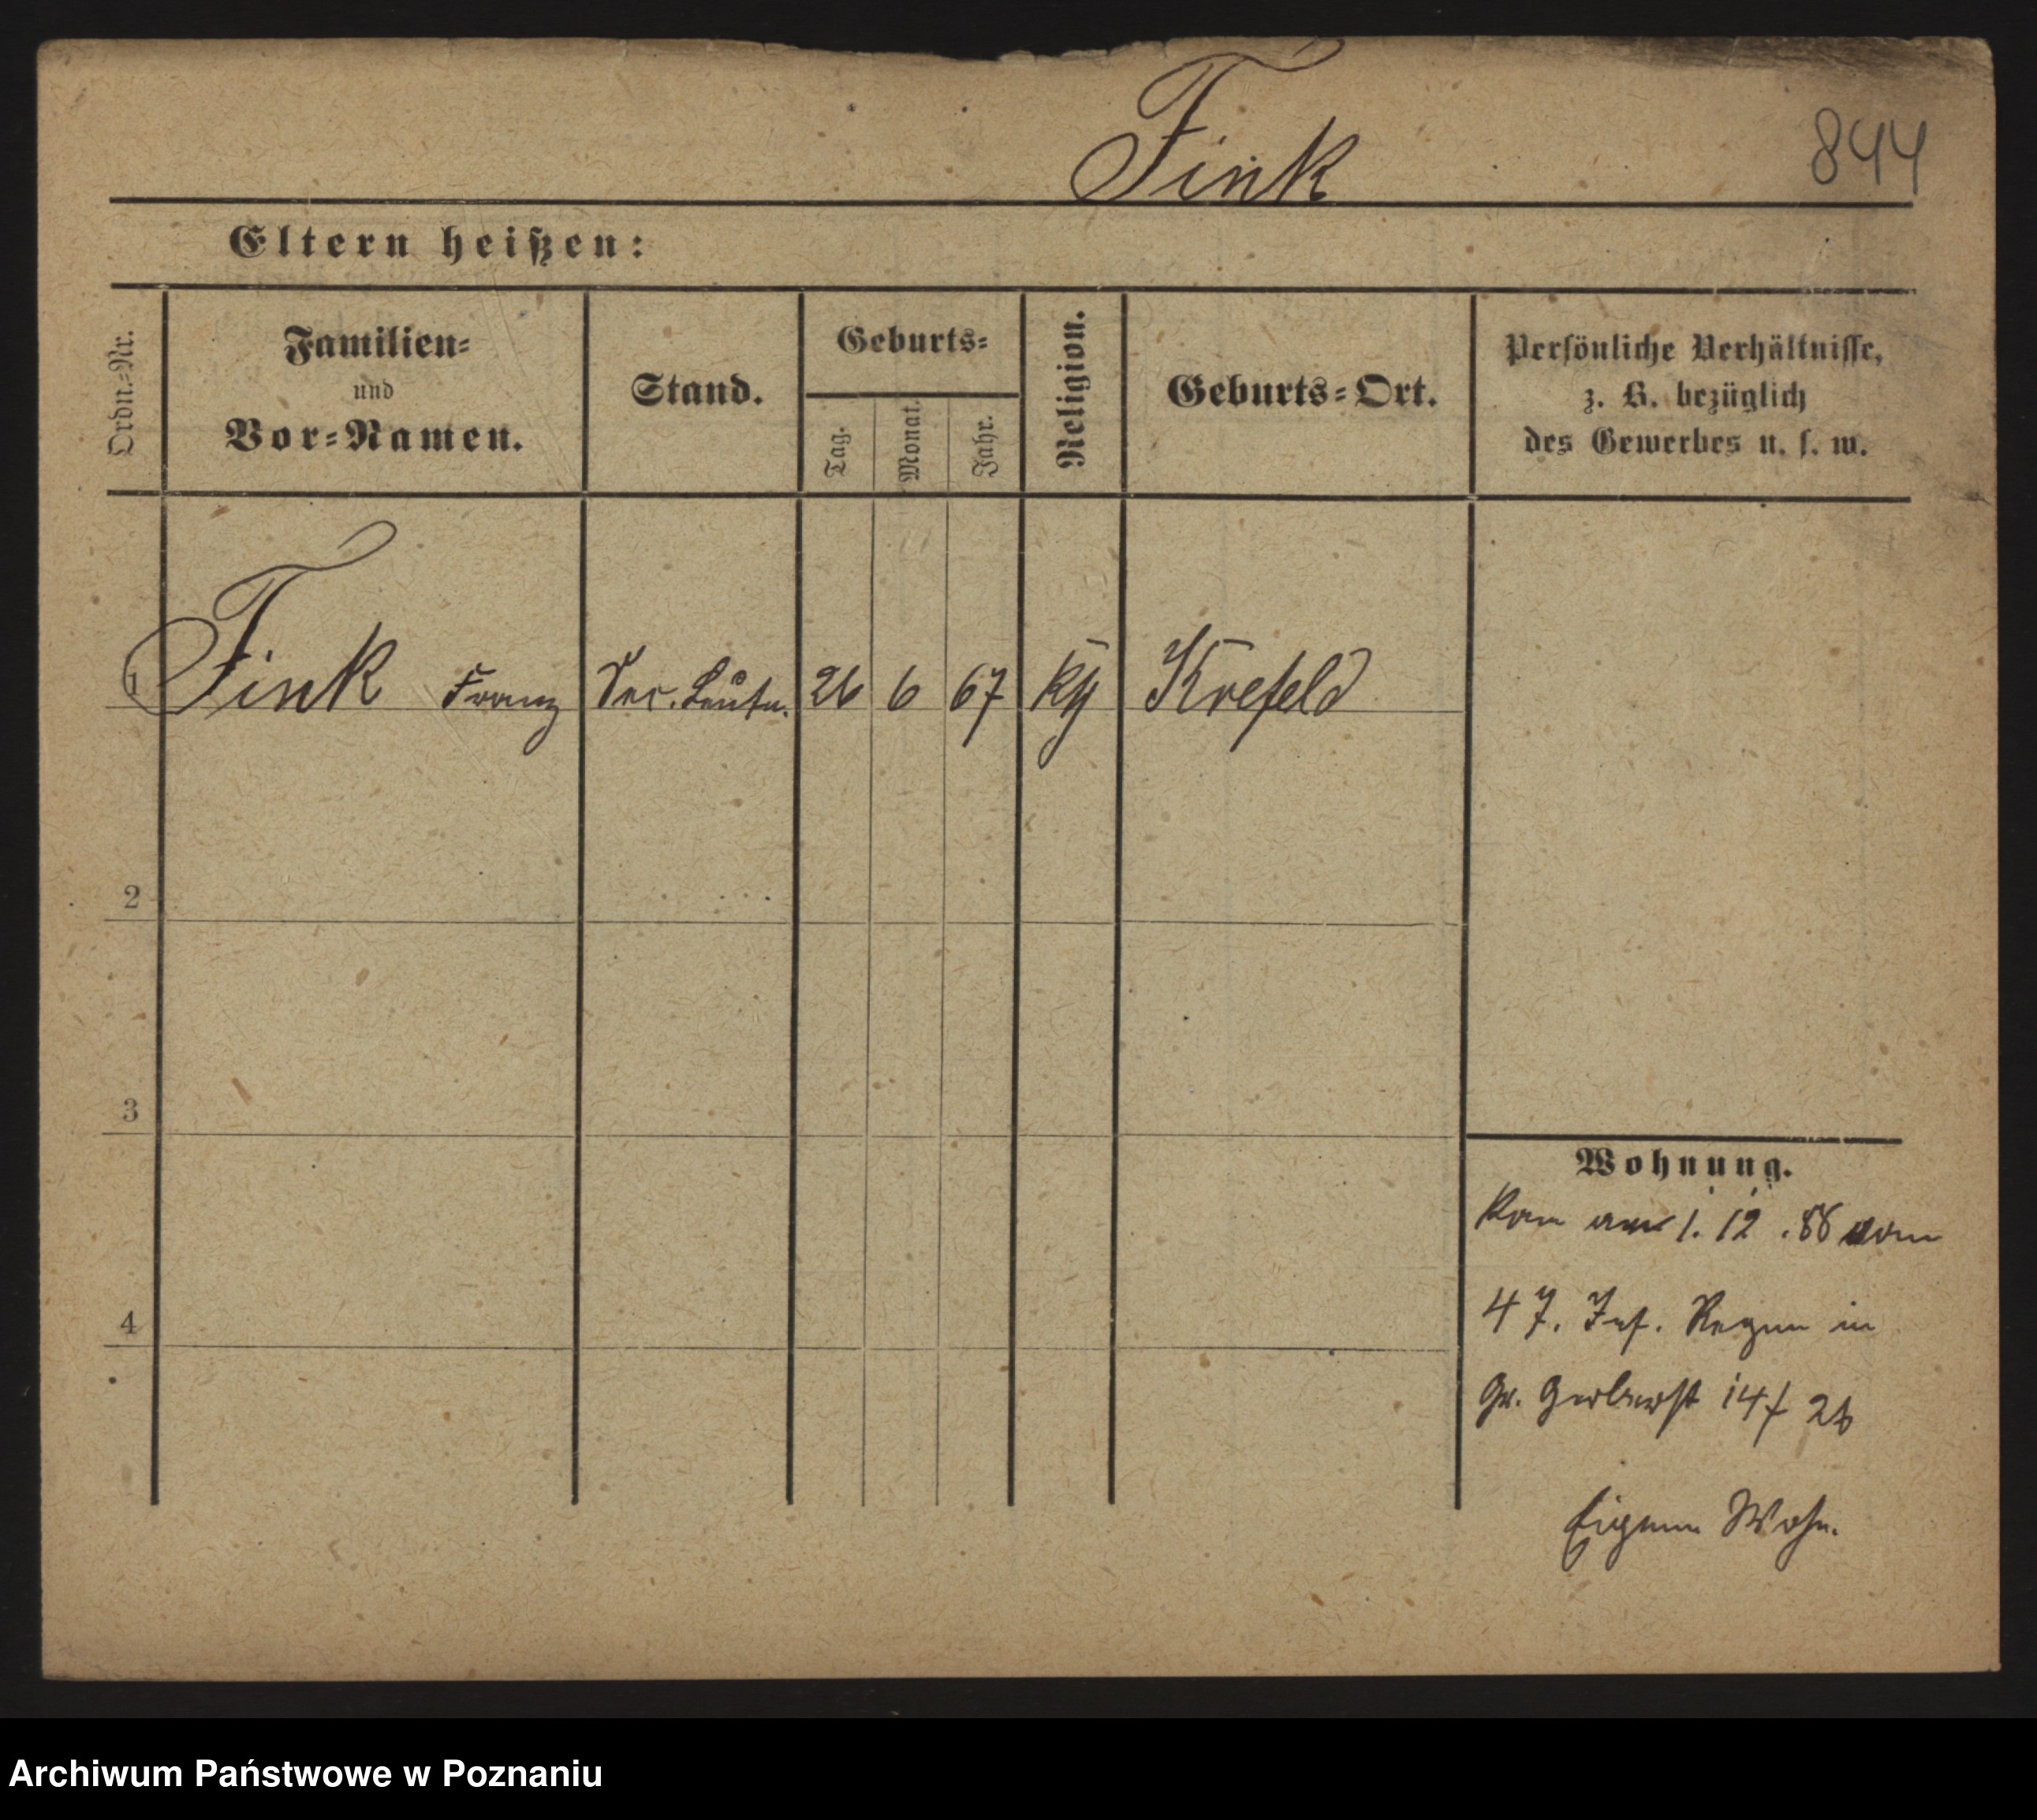 Fink
844
Eltern heißen:
Ordn.=Nr.
Familien=
und
Vor=Namen.
Stand.
Geburts=
Tag.
Monat.
Jahr.
Religion.
Geburts=Ort.
Persönliche Verhältnisse,
z. B. bezüglich
des Gewerbes u. s. w.
1 Fink Franz Sec. Leutn. 26 6 67 kth Krefeld
2
3
4
Wohnung.
Kam am 1. 12 . 88 vom
47. Inf. Regim in
Gr. Gerberst 14/ 26
Eigene Wohn.
Archiwum Państwowe w Poznaniu